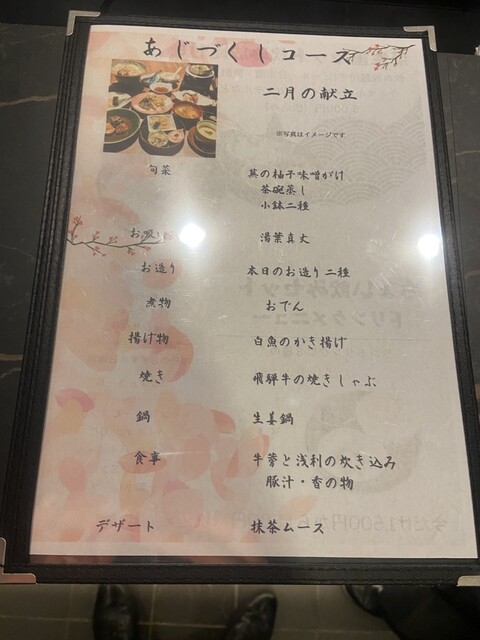 あじづくしコース
二月の献立
※写真はイメージです
旬菜 其の柚子味噌がけ
茶碗蒸し
小鉢二種
お吸 湯葉真丈
お造り 本日のお造り二種
煮物 おでん
揚げ物 白魚のかき揚げ
焼き 飛騨牛の焼きしゃぶ
鍋 生姜鍋
食事 牛蒡と浅利の炊き込み
豚汁・香の物
デザート 抹茶ムース